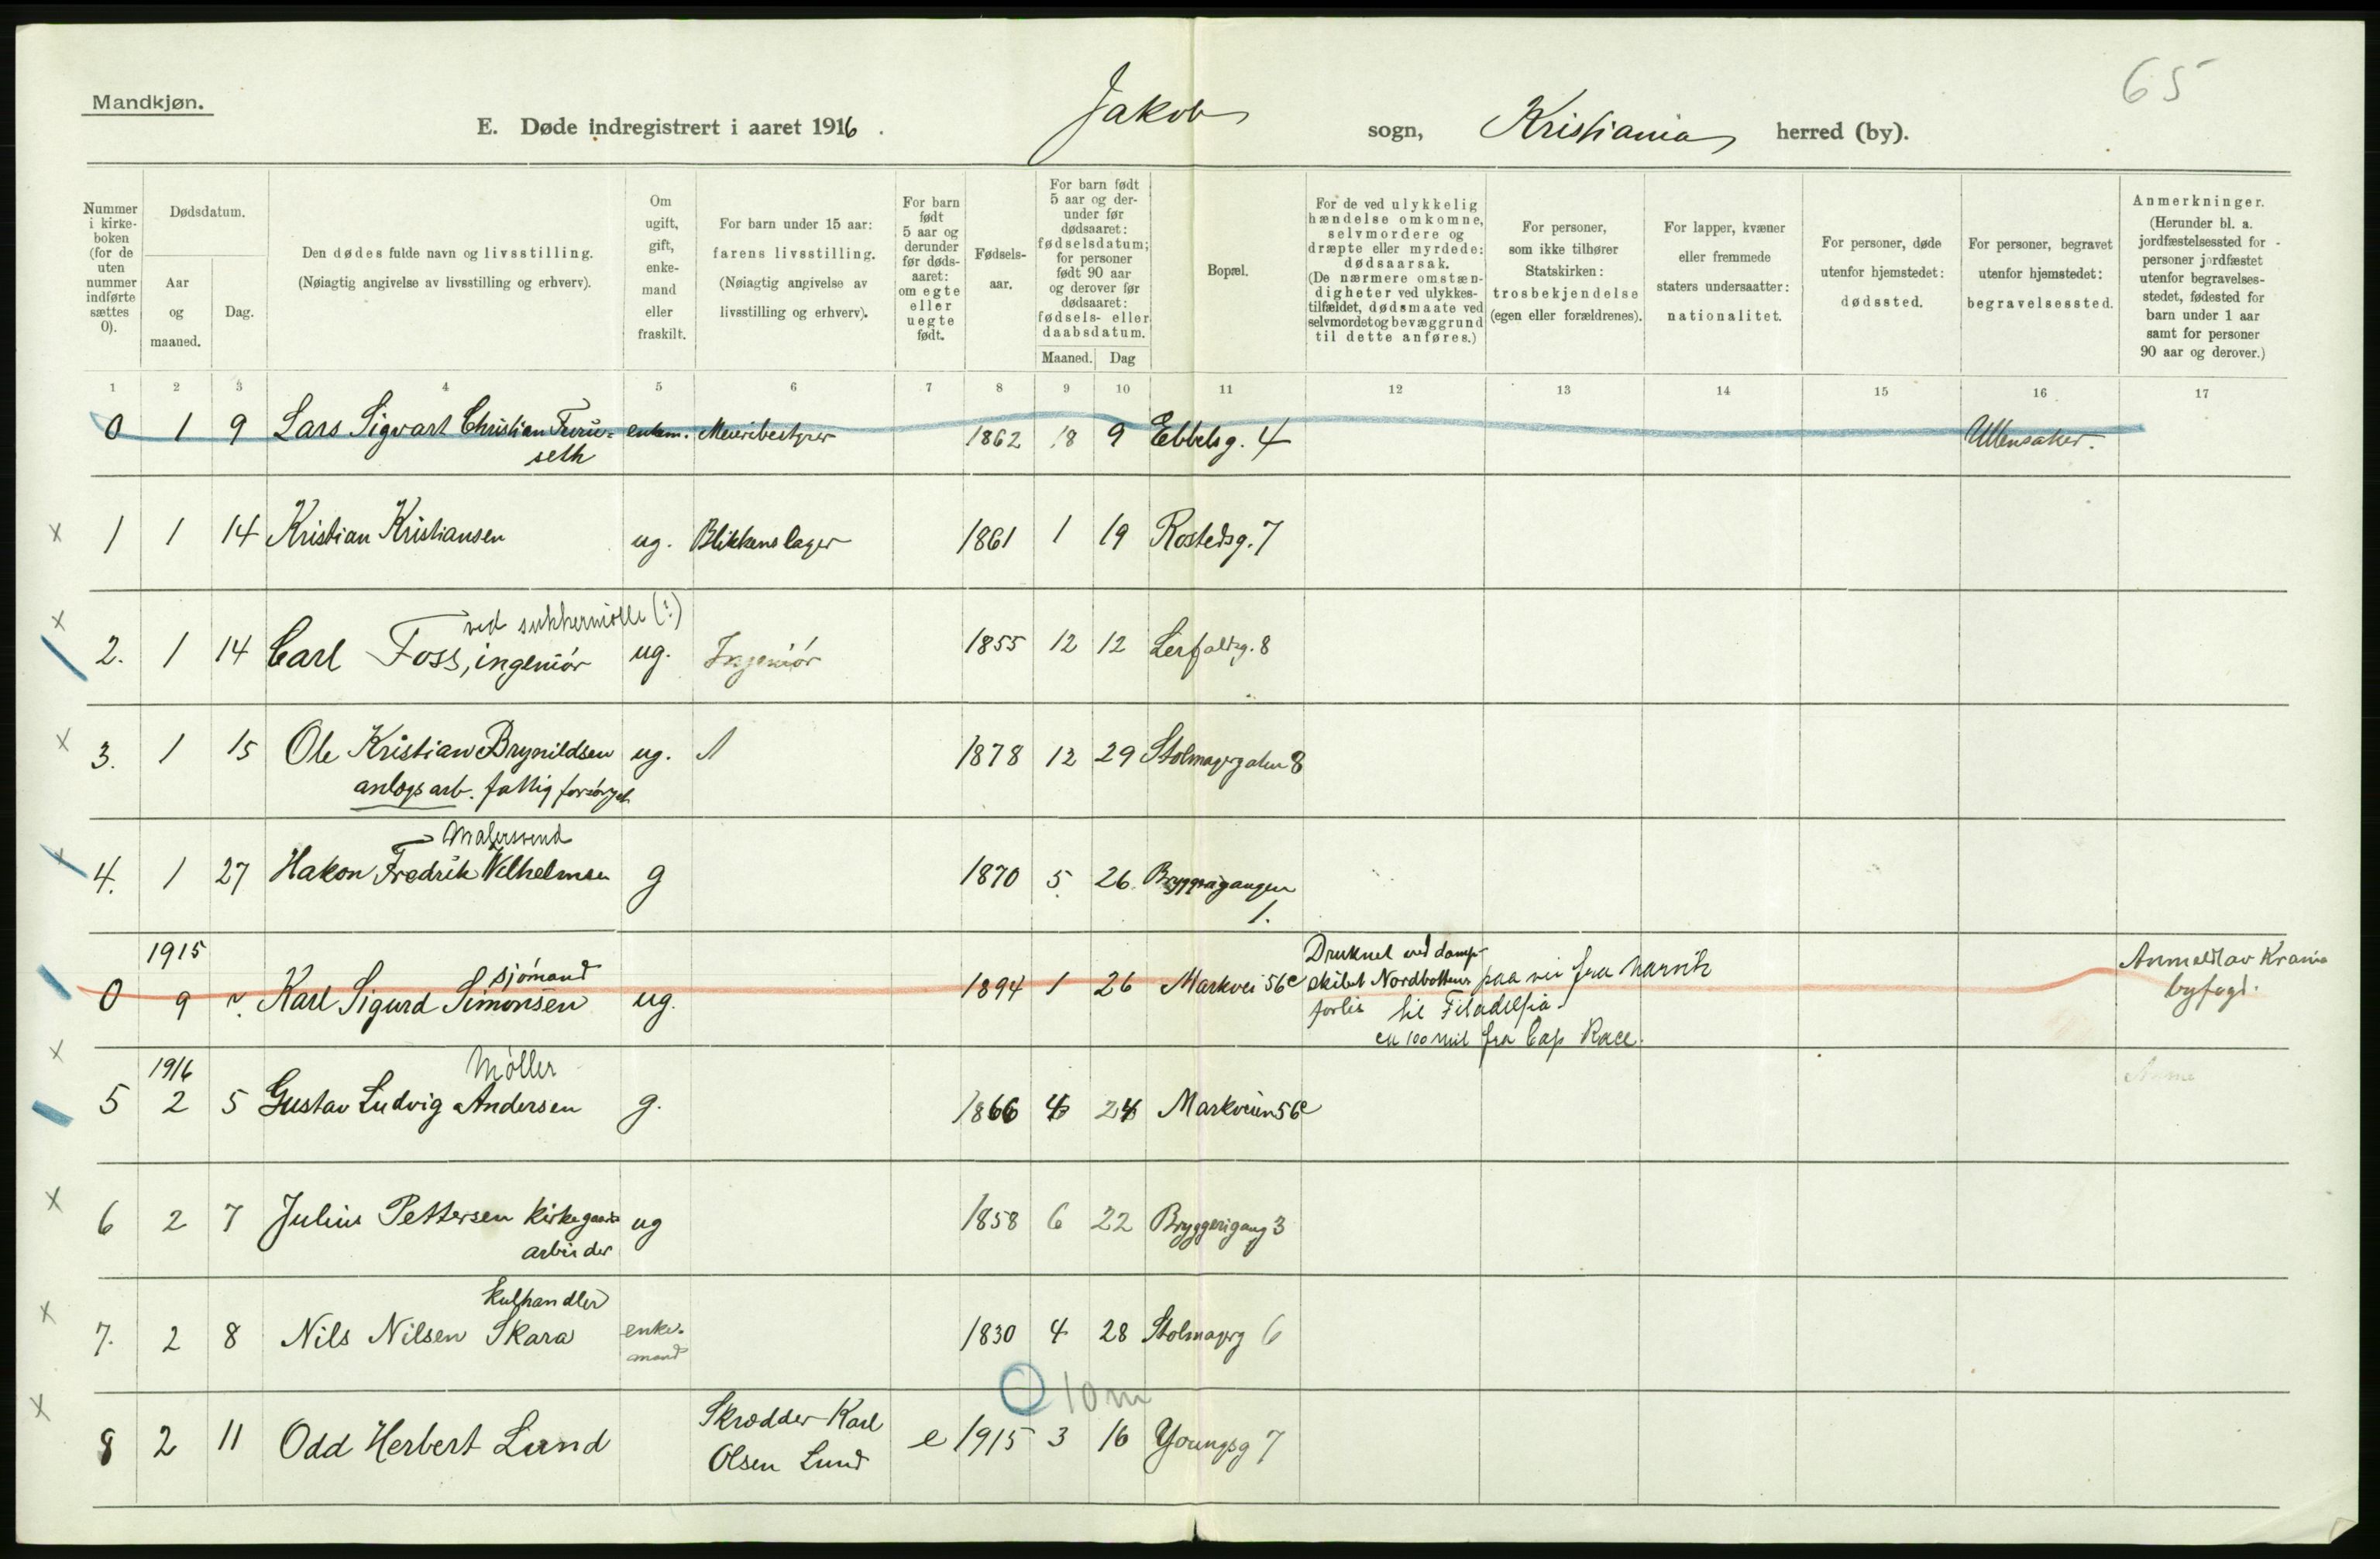 65
Mandkjøn.
E. Døde indregistrert i aaret 1916. Jakob sogn, Kristiania herred (by).
Nummer i kirke-boken (for de uten nummer indførte sættes 0).
Dødsdatum.
Aar og maaned.
Dag.
Den dødes fulde navn og livsstilling.
(Nøiagtig angivelse av livsstilling og erhverv).
Om ugift, gift, enke-mand eller fraskilt.
For barn under 15 aar: farens livsstilling.
(Nøiagtig angivelse av livsstilling og erhverv).
For barn født 5 aar og derunder før døds-aaret: om egte eller uegte født.
Fødsels-aar.
For barn født 5 aar og der-under før dødsaaret: fødselsdatum; for personer født 90 aar og derover før dødsaaret: fødsels- eller daabsdatum.
Maaned. Dag
Bopæl.
For de ved ulykkelig hændelse omkomne, selvmordere og dræpte eller myrdede: dødsaarsak.
(De nærmere omstæn-digheter ved ulykkes-tilfældet, dødsmaate ved selvmordet og bevæggrund til dette anføres.)
For personer, som ikke tilhører Statskirken: trosbekjendelse (egen eller forældrenes).
For lapper, kvæner eller fremmede staters undersaatter: nationalitet.
For personer, døde utenfor hjemstedet: dødssted.
For personer, begravet utenfor hjemstedet: begravelsessted.
Anmerkninger.
(Herunder bl. a. jordfæstelsessted for personer jordfæstet utenfor begravelses-stedet, fødested for barn under 1 aar samt for personer 90 aar og derover.)
1 2 3 4 5 6 7 8 9 10 11 12 13 14 15 16 17
0 1 9 Lars Sigvart Christian Furu= enkem. Meieribestyrer 1862 18 9 Ebbelsg. 4 Ullensaker.
seth
x 1 1 14 Kristian Kristiansen ug. Blikkenslager 1861 1 19 Rostedsg. 7
ved sukkermölle (?)
x 2. 1 14 Carl Foss, ingeniör ug. Ingeniör 1855 12 12 Lerfaldsg. 8
x 3. 1 15 Ole Kristian Brynildsen ug. 1878 12 29 Stolmagergaten 8
anlægsarb. fattigforsörget
Malersvend
x 4. 1 27 Hakon Fredrik Vilhelmsen g 1870 5. 26. Bryggerigangen
1.
1915
sjömand
0 9 Karl Sigurd Simonsen ug. 1894 1 26 Markvei 56c
Druknet ved damp-
skibet Nordbottens paa vei fra Narvik
forlis til Filadelfia
ca 100 mil fra Cap Race.
Anmeldt av Krania
byfogd.
x 1916
Möller
5 2 5 Gustav Ludvig Andersen g. 1866 4 24 Markveien 56c
x 6 2 7 Julius Pettersen kirkegaards ug 1858 6 22 Bryggerigang 3
arbeider
Kulhandler
x 7. 2 8 Nils Nilsen Skara enke-mand 1830 4 28 Stolmagerg 6
10 m
x 8 2 11 Odd Herbert Lund Skrædder Karl e 1915 3 16 Youngsg 7
Olsen Lund